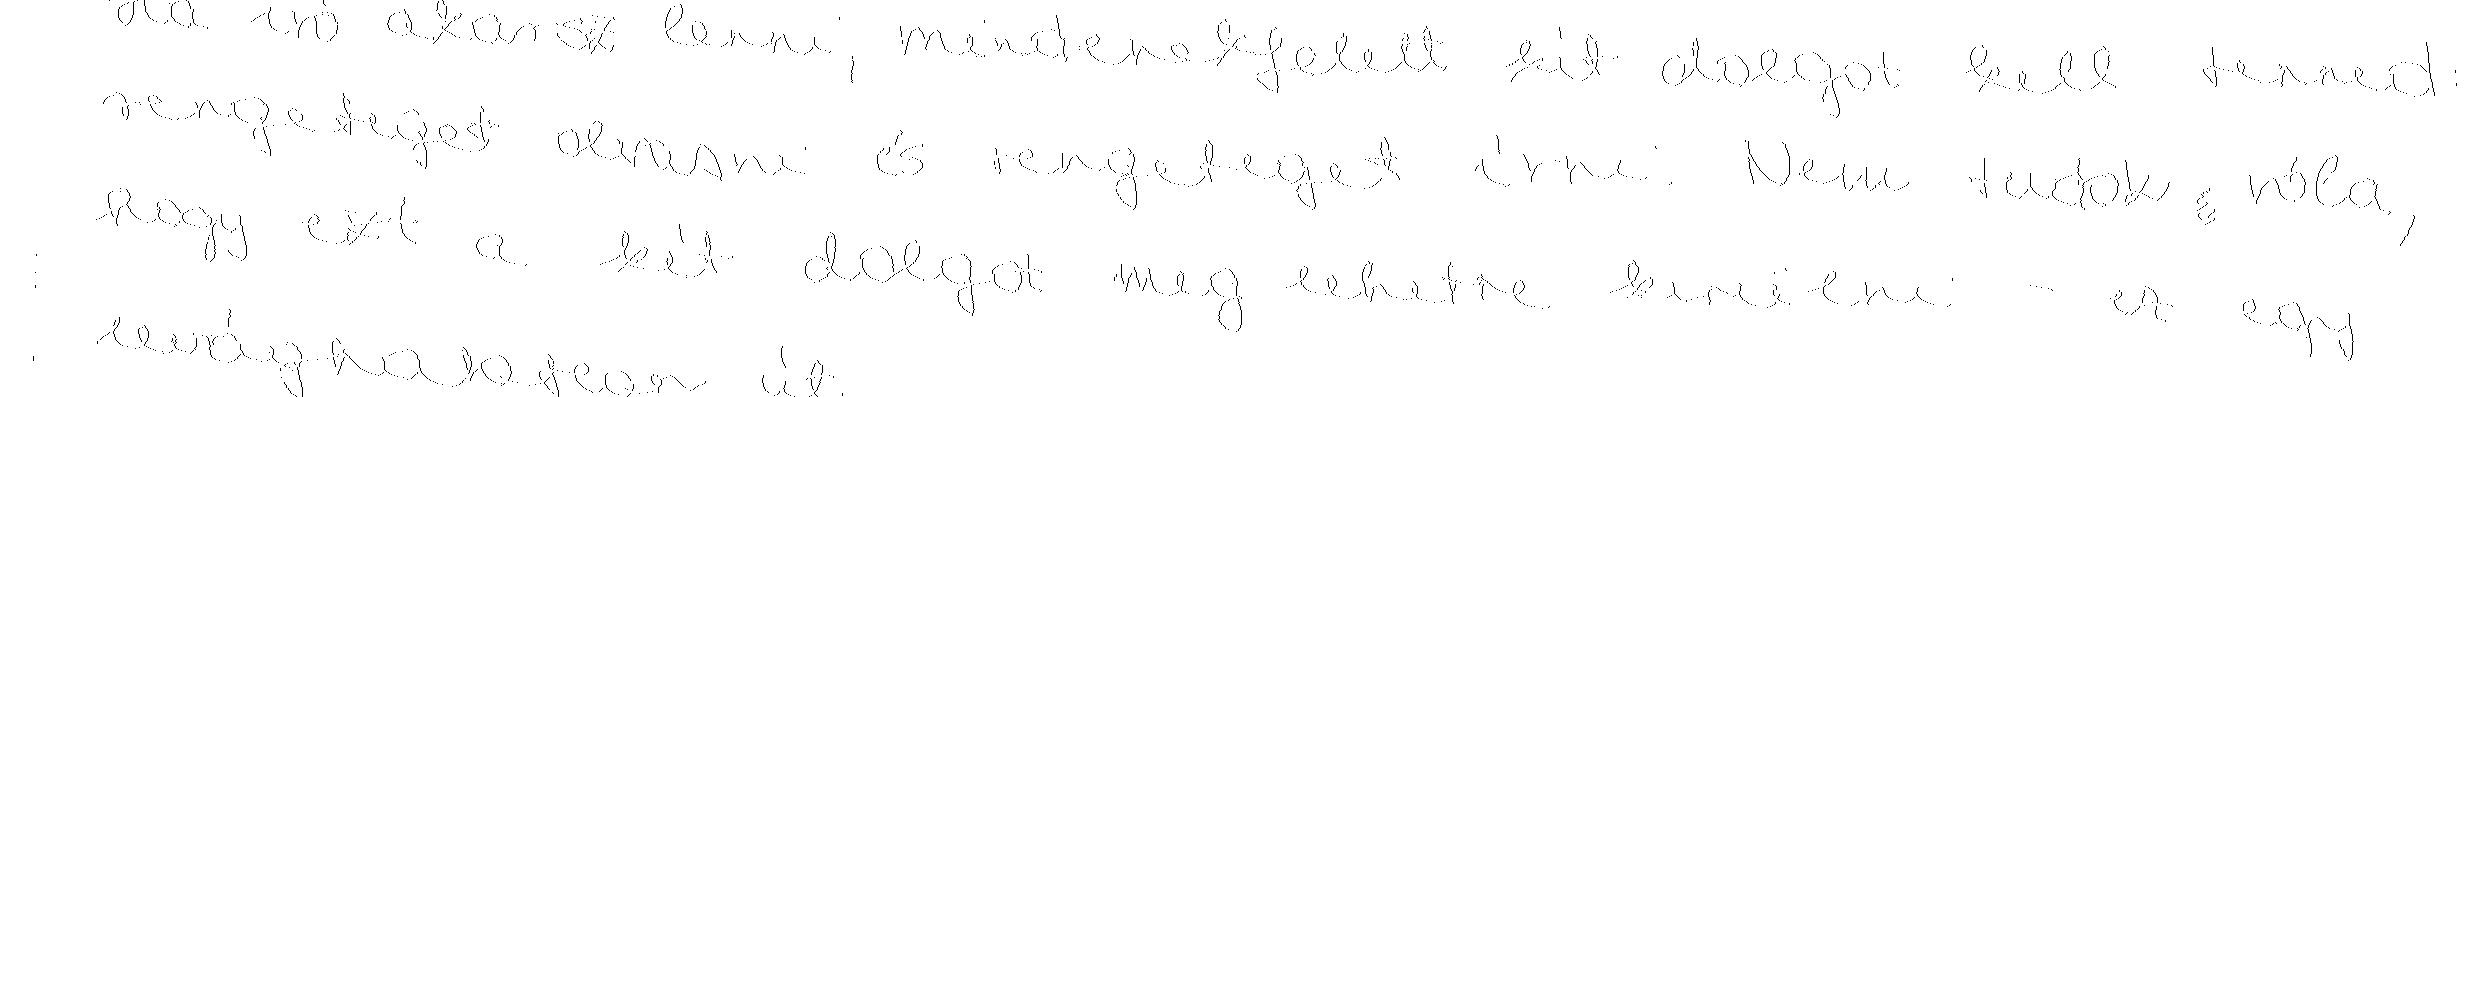 Ha író akarsz lenni, mindenekfelett két dolgot kell tenned:
rengeteget olvasni és rengeteget írni. Nem tudok róla,
hogy ezt a két dolgot meg lehetne kerülni - ez egy
levághatatlan út.